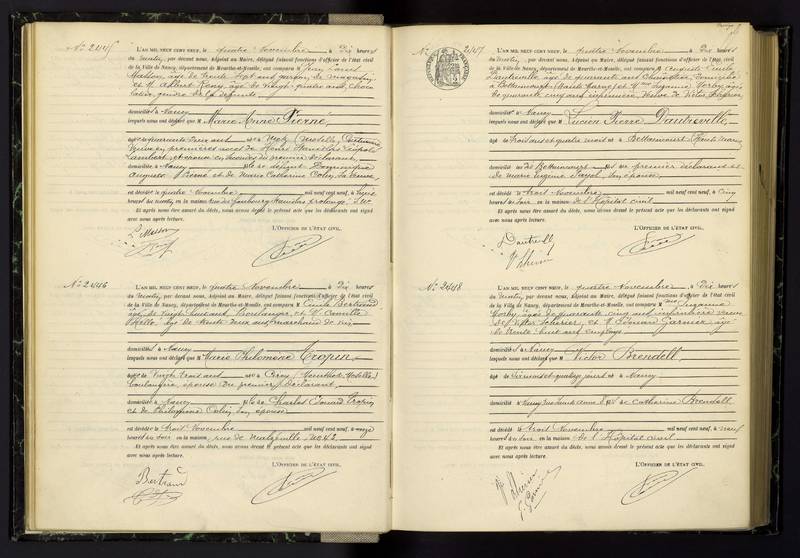 No 2445
L'AN MIL NEUF CENT NEUF, le quatre Novembre à Dix heures
du matin, par devant nous, Adjoint au Maire, délégué faisant fonctions d'officier de l'état civil
de la Ville de Nancy, département de Meurthe-et-Moselle, ont comparu M Jean Louis
Masson, âgé de trente sept ans, garçon de magasin,
et M Albert Remy, âgé de vingt quatre ans, choco
latier, gendre de la défunte
domiciliés à Nancy
lesquels nous ont déclaré que M Marie Anne Pierné
âgée de quarante ans née à (Moselle)
Veuve en premières noces de Henri Stanislas
Lambert et épouse en secondes du premier déclarant,
domiciliée à Nancy fille de défunt Dominique
Auguste Pierné et de Marie Catherine Colin, sa veuve
est décédée le quatre Novembre mil neuf cent neuf, à
heures du matin, en la maison rue du Faubourg Stanislas prolongé
Et après nous être assuré du décès, nous avons dressé le présent acte que les déclarants ont signé
avec nous après lecture.
L'OFFICIER DE L'ÉTAT CIVIL.
L. Masson
No 2446
L'AN MIL NEUF CENT NEUF, le quatre Novembre à Dix heures
du matin, par devant nous, Adjoint au Maire, délégué faisant fonctions d'officier de l'état civil
de la Ville de Nancy, département de Meurthe-et-Moselle, ont comparu M Emile Bertrand
âgé de vingt huit ans, Boulanger, et M Camille
âgé de trente deux ans, marchand de vin
domiciliés à Nancy
lesquels nous ont déclaré que M Marie Philomène Tropin
âgée de vingt trois ans née à (Meurthe & Moselle)
boulangère, épouse du premier déclarant,
domiciliée à Nancy fille de Charles Edouard Tropin
et de Philomène Colin, son épouse
est décédée le trois Novembre mil neuf cent neuf, à onze
heures du soir, en la maison, rue de Malzéville, No 42
Et après nous être assuré du décès, nous avons dressé le présent acte que les déclarants ont signé
avec nous après lecture.
L'OFFICIER DE L'ÉTAT CIVIL.
Bertrand
No 2447
L'AN MIL NEUF CENT NEUF, le quatre Novembre à Dix heures
du matin, par devant nous, Adjoint au Maire, délégué faisant fonctions d'officier de l'état civil
de la Ville de Nancy, département de Meurthe-et-Moselle, ont comparu M Auguste Emile
Dautreville, âgé de quarante ans, domicilié
à Bettancourt (Haute Marne) et Mme Suzanne Vorby âgée
de quarante cinq ans, infirmière, veuve de Victor
domiciliés à Nancy
lesquels nous ont déclaré que M Lucien Pierre Dautreville
âgé de trois ans et quatre mois né à Bettancourt (Haute Marne)
domicilié à Bettancourt fils du premier déclarant et
de Marie Eugénie son épouse
est décédé le trois Novembre mil neuf cent neuf, à cinq
heures du soir, en la maison de l'Hôpital civil
Et après nous être assuré du décès, nous avons dressé le présent acte que les déclarants ont signé
avec nous après lecture.
L'OFFICIER DE L'ÉTAT CIVIL.
No 2448
L'AN MIL NEUF CENT NEUF, le quatre Novembre à Dix heures
du matin, par devant nous, Adjoint au Maire, délégué faisant fonctions d'officier de l'état civil
de la Ville de Nancy, département de Meurthe-et-Moselle, ont comparu Mme Suzanne
Vorby, âgée de quarante cinq ans, infirmière, veuve
de Victor et M Edouard Garnier, âgé
de trente huit ans, employé
domiciliés à Nancy
lesquels nous ont déclaré que M Victor Brendell
âgé de six mois et quatre jours né à Nancy
domicilié à Nancy, rue fils de Catherine Brendell
est décédé le trois Novembre mil neuf cent neuf, à neuf
heures du soir, en la maison de l'Hôpital civil
Et après nous être assuré du décès, nous avons dressé le présent acte que les déclarants ont signé
avec nous après lecture.
L'OFFICIER DE L'ÉTAT CIVIL.